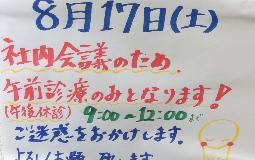 8月17日(土)
社内会議のため
午前診療のみとなります!
(午後休診) 9:00〜12:00まで
ご迷惑をおかけします。
よろしくお願い致します。